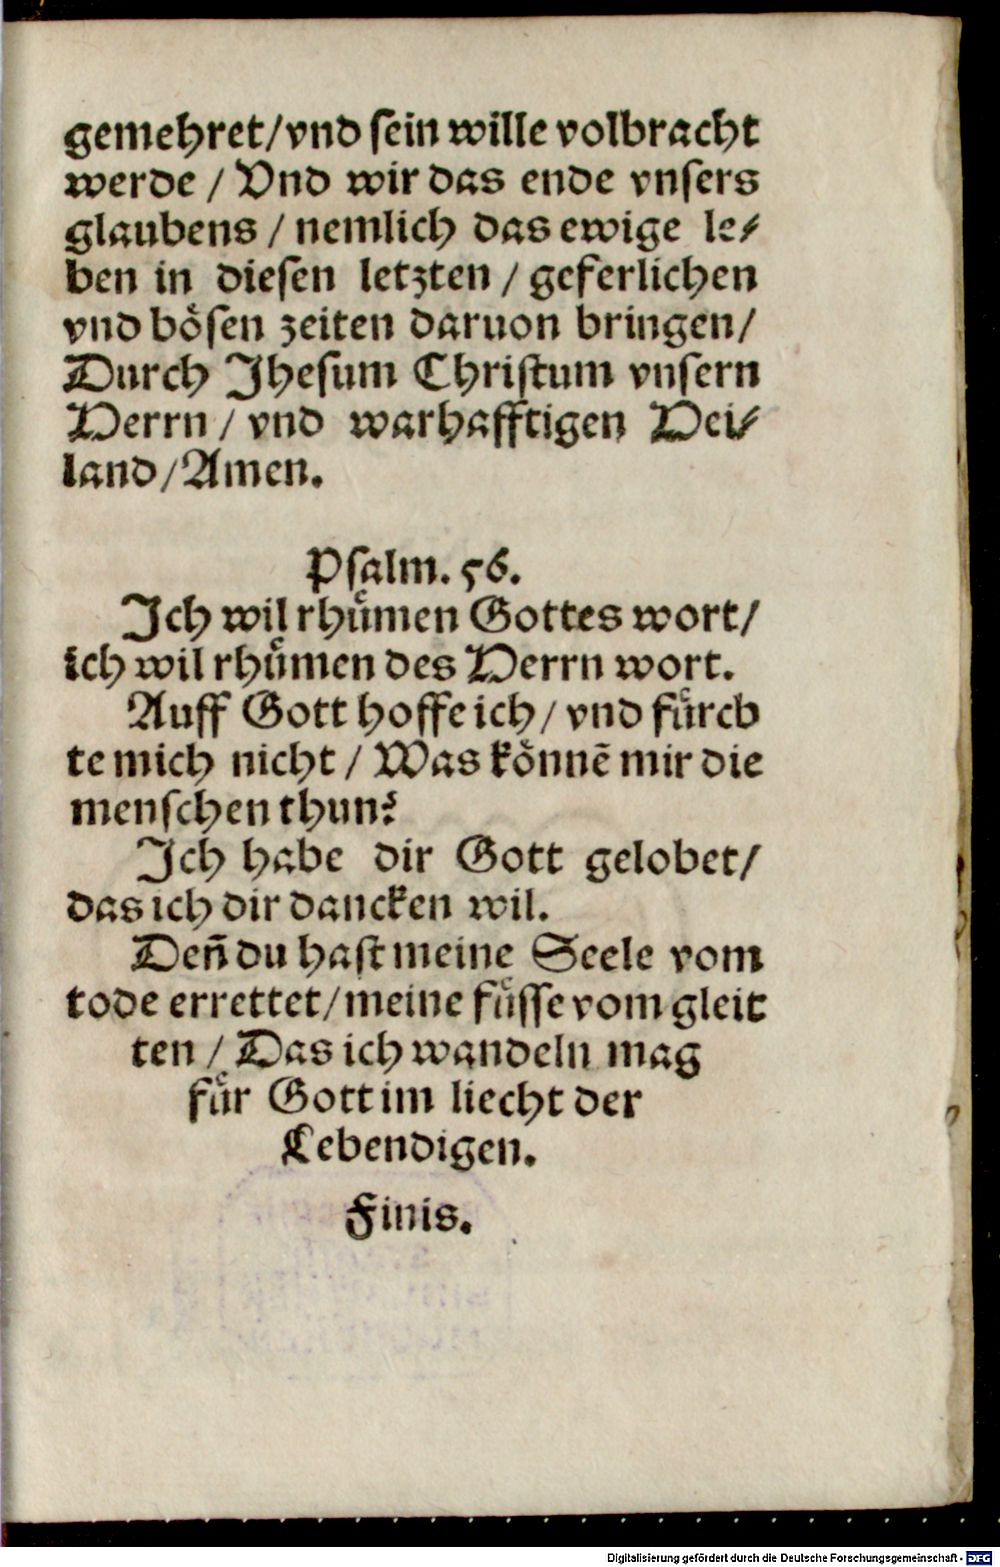 gemehret/vnd sein wille volbracht
werde / Vnd wir das ende vnsers
glaubens / nemlich das ewige le⸗
ben in diesen letzten / geferlichen
vnd boͤsen zeiten daruon bringen/
Durch Jhesum Christum vnsern
Herrn / vnd warhafftigen Hei⸗
land/Amen.
Psalm. 56.
Jch wil rhuͤmen Gottes wort/
ich wil rhuͤmen des Herrn wort.
Auff Gott hoffe ich/ vnd fuͤrch
te mich nicht / Was koͤnnē mir die
menschen thun?
Jch habe dir Gott gelobet/
das ich dir dancken wil.
Deñ du hast meine Seele vom
tode errettet/meine fuͤsse vom gleit
ten / Das ich wandeln mag
fuͤr Gott im liecht der
Lebendigen.
Finis.
Digitalisierung gefördert durch die Deutsche Forschungsgemeinschaft - DFG